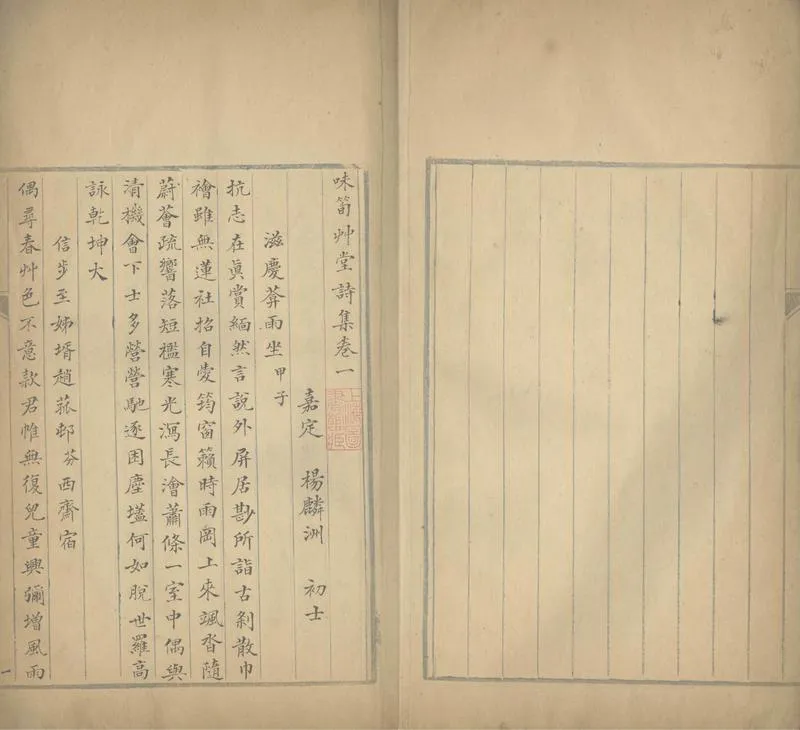 味筍艸堂詩集卷一
嘉定 楊麟洲 初士
滋慶葊雨坐 甲子
抗志在眞賞緬然言說外屏居尠所詣古剎散巾
襘雖無蓮社招自愛筠窗籟時雨岡上來颯沓隨
蔚薈疏響落短檻寒光瀉長澮蕭條一室中偶與
清機會下士多營營馳逐困塵壒何如脫世羅高
詠乾坤大
信步至姊壻趙菰邨芬西齋宿
偶尋春艸色不意款君帷無復兒童興彌增風雨
一
上海圖書館藏